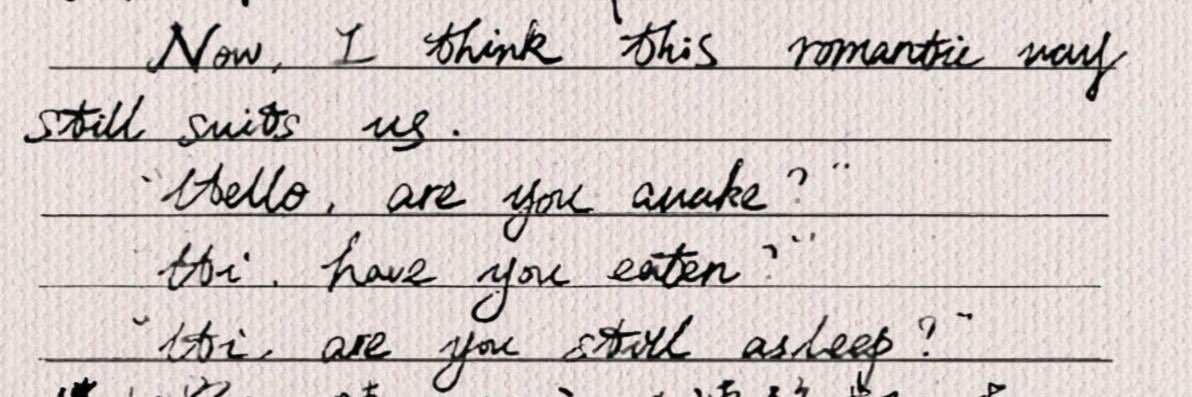 Now, I think this romantic way
still suits us.
"Hello, are you awake?"
Hi, have you eaten?"
"Hi, are you still asleep?"